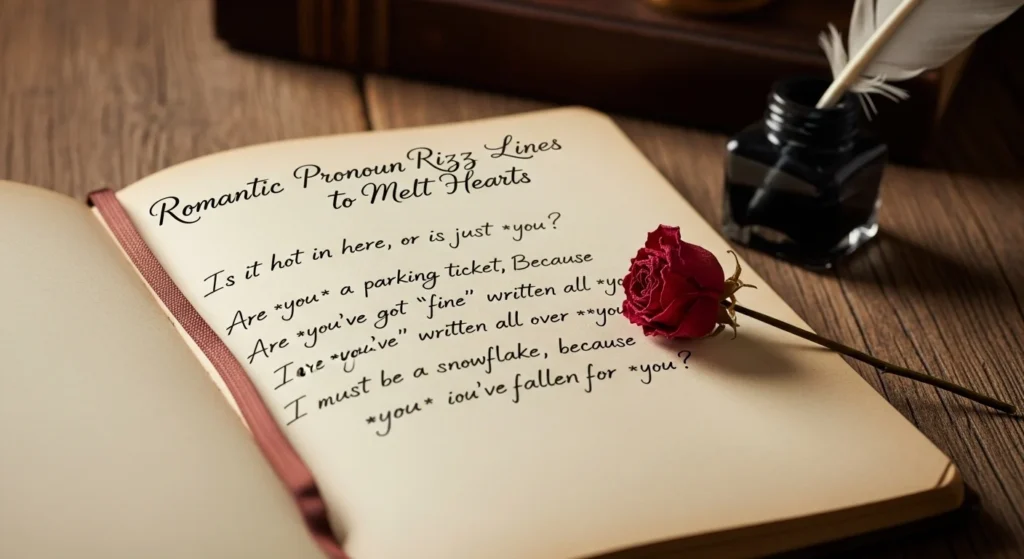 Romantic Pronoun Rizz Lines
to Melt Hearts
Is it hot in here, or is just *you?
Are *you* a parking ticket, Because
Are *you've got “fine” written all *yo
I are *you've” written all over **you
I must be a snowflake, because
*you* iou've fallen for *you?